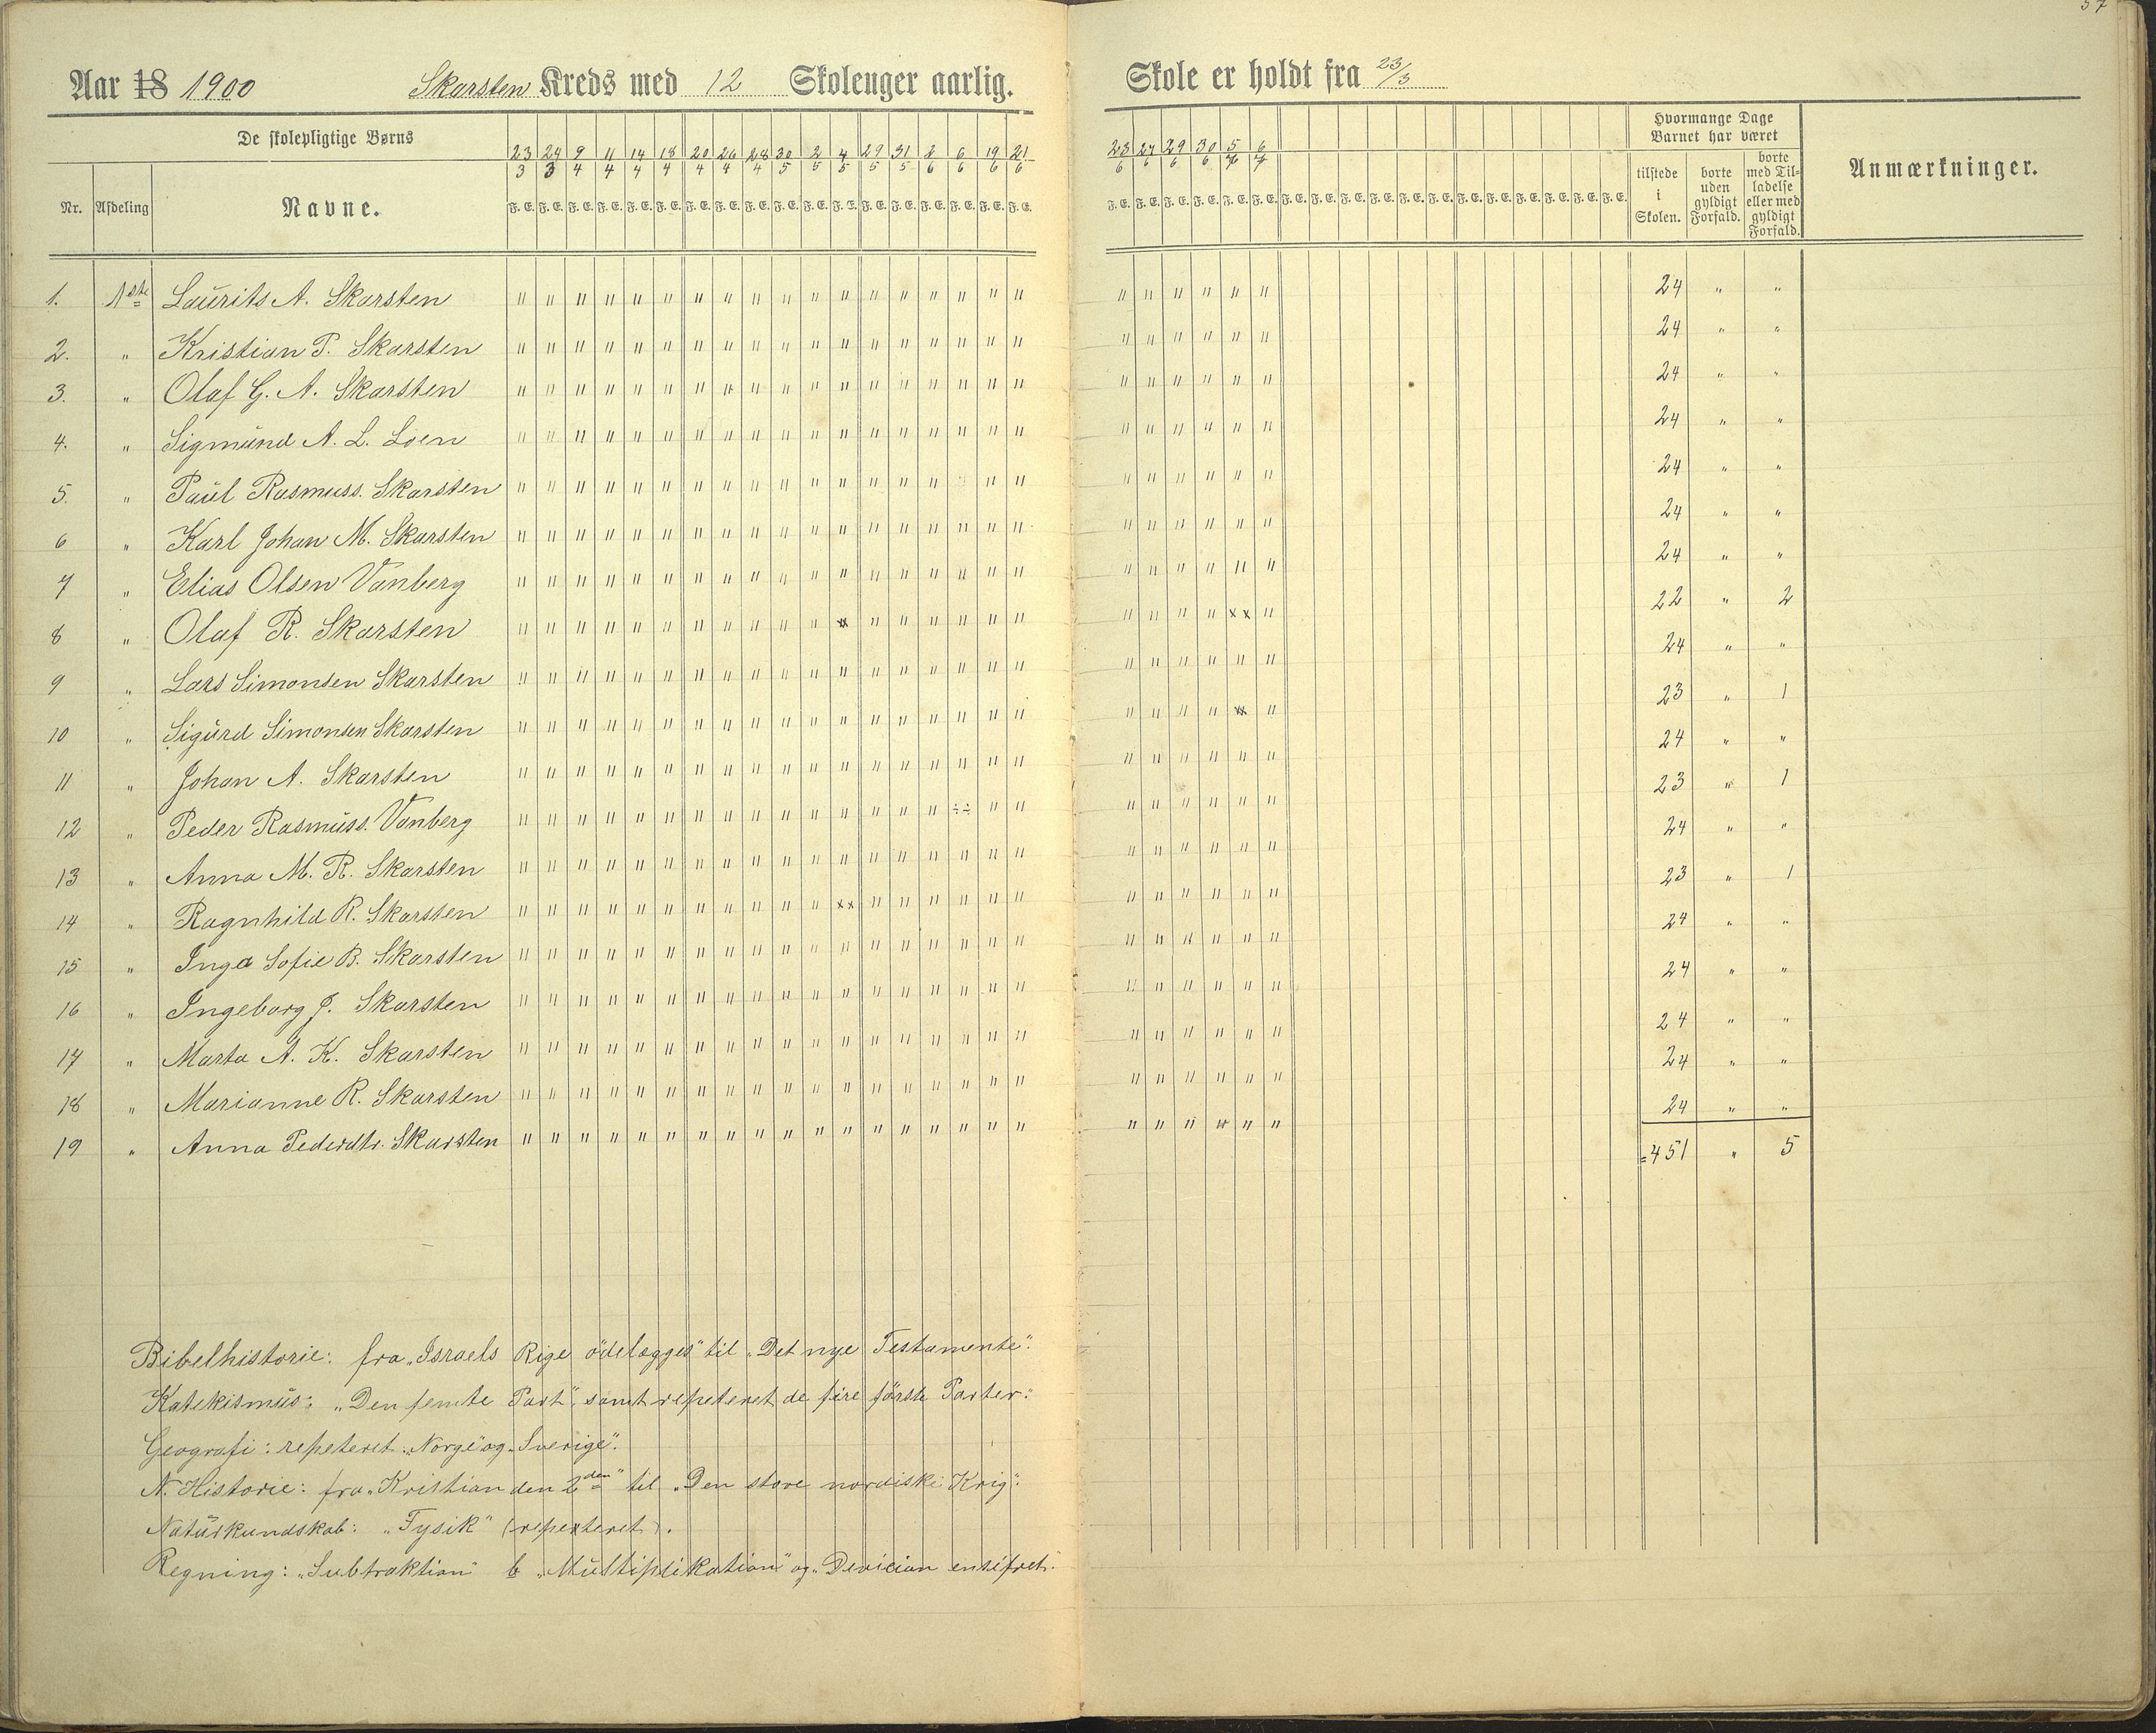 57
Aar 18 1900 Skarsten Kreds med 12 Skoleuger aarlig.
Skole er holdt fra 23/3
De skolepligtige Børns
Nr. Afdeling Navne.
23/3 24/3 9/4 11/4 14/4 18/4 20/4 26/4 28/4 30/5 2/5 4/5 29/5 31/5 2/6 6/6 19/6 21/6
23/6 27/6 29/6 30/6 5/7 6/7
F. E. F. E. F. E. F. E. F. E. F. E. F. E. F. E. F. E. F. E. F. E. F. E. F. E. F. E. F. E. F. E. F. E. F. E.
F. E. F. E. F. E. F. E. F. E. F. E. F. E. F. E. F. E. F. E. F. E. F. E. F. E. F. E. F. E. F. E. F. E. F. E.
Hvormange Dage
Barnet har været
tilstede i Skolen.
borte uden gyldigt Forfald.
borte med Til-
ladelse eller med gyldigt Forfald.
Anmærkninger.
1. 1ste Laurits A. Skarsten 24 " "
2. " Kristian P. Skarsten 24 " "
3. " Olaf G. A. Skarsten 24 " "
4. " Sigmund A. L. Loen 24 " "
5. " Paul Rasmuss. Skarsten 24 " "
6 " Karl Johan M. Skarsten 24 " "
7 " Elias Olsen Vanberg 24 " "
8 " Olaf R. Skarsten x x x 22 " 2
9 " Lars Simonsen Skarsten 24 " "
10 " Sigurd Simonsen Skarsten xx 23 " 1
11 " Johan A. Skarsten 24 " "
12 " Peder Rasmuss. Vanberg ÷÷ 23 " 1
13 " Anna M. R. Skarsten 24 " "
14 " Ragnhild R. Skarsten xx 23 " 1
15 " Inga Sofie B. Skarsten 24 " "
16 " Ingeborg J. Skarsten 24 " "
17 " Marta A. K. Skarsten 24 " "
18 " Marianne R. Skarsten 24 " "
19 " Anna Pedersdtr. Skarsten 24 " "
=451 " 5
Bibelhistorie: fra „Israels Rige ödelægges" til „Det nye Testamente".
Katekismus: „Den femte Part", samt repeteret de fire første Parter.
Geografi: repeteret „Norge" og „Sverige".
N. Historie: fra „Kristian den 2den" til „Den store nordiske Krig".
Naturkundskab: „Fysik" (repeteret).
Regning: „Subtraktion" b „Multiplikation" og „Devician ensifret".